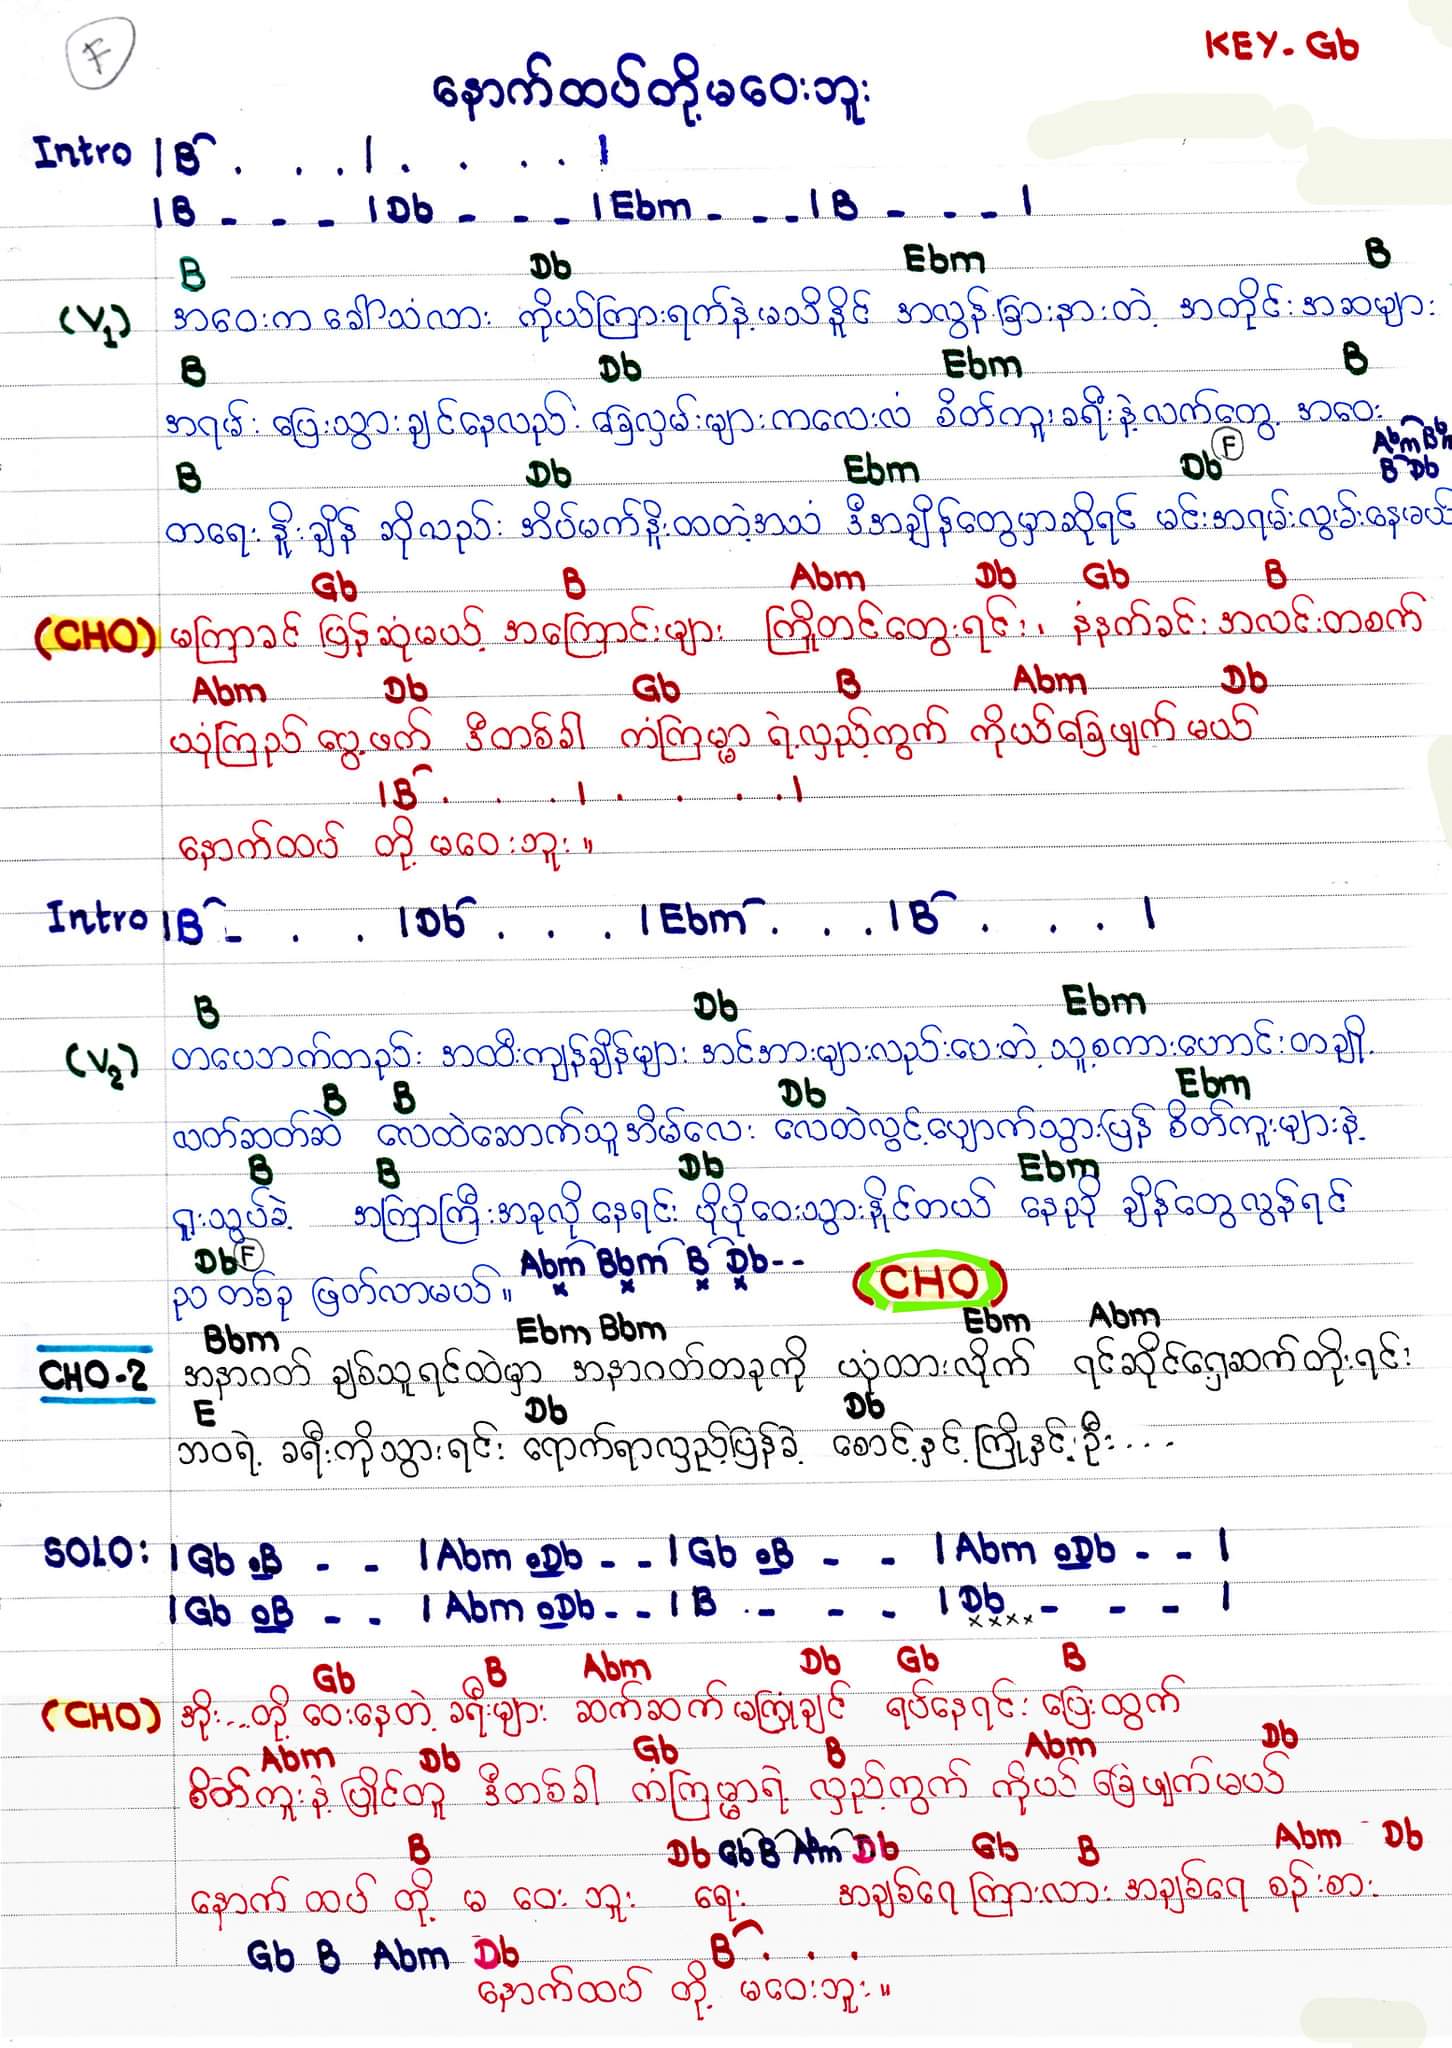 F
KEY - Gb
နောက်ထပ်တို့မဝေးဘူး
Intro | B . . . | . . . . |
| B - - - | Db - - - | Ebm - - - | B - - - |
B Db Ebm B
(V1) အဝေးက ခေါ်သံလား ကိုယ်ကြားရက်နဲ့မသိနိုင် အလွန်ခြားနားတဲ့ အတိုင်းအဆများ
B Db Ebm B
အရမ်းပြေးသွားချင်နေလည်း ခြေလှမ်းများကလေးလံ စိတ်ကူးခရီးနဲ့လက်တွေ့ အဝေး
Abm Bbm
B Db Ebm Db F B Db
တရေးနိုးချိန် ဆိုလည်း အိပ်မက်နိုးထတဲ့အသံ ဒီအချိန်တွေမှာဆိုရင် မင်းအရမ်းလွမ်းနေမယ်
Gb B Abm Db Gb B
(CHO) မကြာခင် ပြန်ဆုံမယ့် အကြောင်းများ ကြိုတင်တွေးရင်း၊ နံနက်ခင်း အလင်းတစက်
Abm Db Gb B Abm Db
ယုံကြည် မွေ့ဖတ် ဒီတစ်ခါ ကံကြမ္မာရဲ့လှည့်ကွက် ကိုယ်ခြေဖျက်မယ်
| B . . . | . . . . |
နောက်ထပ် တို့ မဝေးဘူး ။
Intro | B - . . | Db . . . | Ebm . . . | B . . . |
B Db Ebm
(V2) တပေဘက်တည်း အထီးကျန်ချိန်များ အင်အားများလည်းပေးတဲ့ သူ့စကားဟောင်းတချို့
B B Db Ebm
လတ်ဆတ်ဆဲ လေထဲဆောက်သူအိမ်လေး လေထဲလွင့်ပျောက်သွားပြန် စိတ်ကူးများနဲ့
B B Db Ebm
ရူးသွပ်ခဲ့ အကြာကြီးအခုလိုနေရင်း ပိုပိုဝေးသွားနိုင်တယ် နေ့ညို ချိန်တွေလွန်ရင်
Db F Abm Bbm B Db - - (CHO)
ညတစ်ခု ဖြတ်လာမယ် ။
Bbm Ebm Bbm Ebm Abm
CHO-2 အနာဂတ် ချစ်သူရင်ထဲမှာ အနာဂတ်တခုကို ယုံထားလိုက် ရင်ဆိုင်ရှေ့ဆက်တိုးရင်း
E Db Db
ဘဝရဲ့ ခရီးကိုသွားရင်း ရောက်ရာလှည့်ပြန်ခဲ့ စောင့်နှင့် ကြိုနှင့်ဦး....
SOLO: | Gb oB - - | Abm oDb - - | Gb oB - - | Abm oDb - - |
| Gb oB - - | Abm oDb - - | B - - - | Db - - - |
x x x x
Gb B Abm Db Gb B
(CHO) အိုး...တို့ ဝေးနေတဲ့ ခရီးများ ဆက်ဆက်မကြုံချင် ရပ်နေရင်း ပြေးထွက်
Abm Db Gb B Abm Db
စိတ်ကူးနဲ့ ပြိုင်တူ ဒီတစ်ခါ ကံကြမ္မာရဲ့ လှည့်ကွက် ကိုယ် ခြေဖျက်မယ်
B Db Gb B Abm Db Gb B Abm Db
နောက် ထပ် တို့ မ ဝေး ဘူး ရေး အချစ်ရေ ကြားလား အချစ်ရေ စဉ်းစား
Gb B Abm Db B . . .
နောက်ထပ် တို့ မဝေးဘူး ။